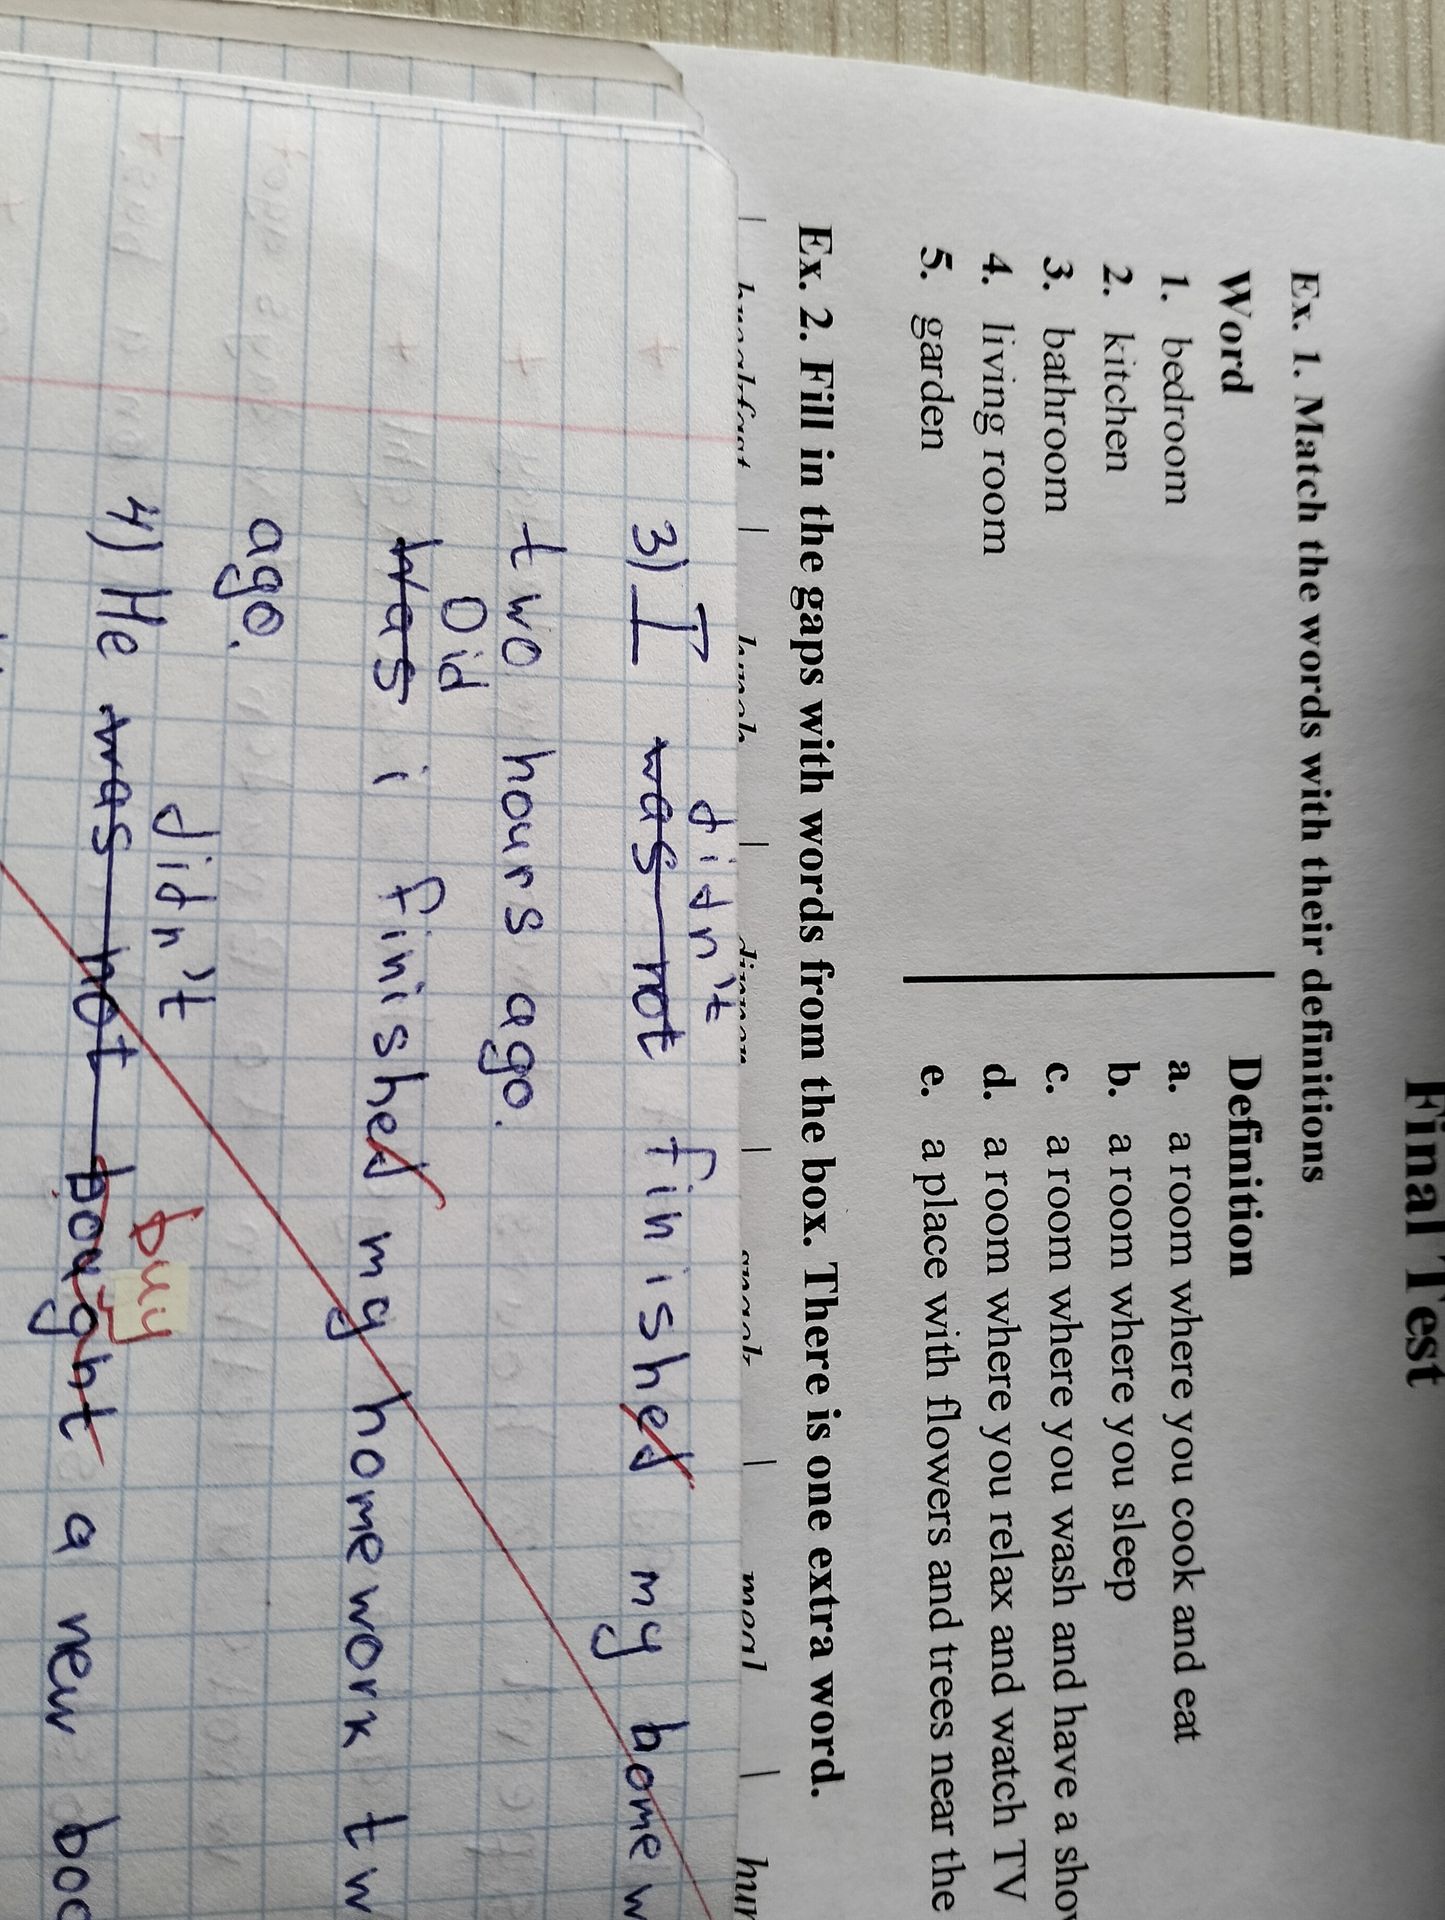 Final Test
Ex. 1. Match the words with their definitions
Word Definition
1. bedroom a. a room where you cook and eat
2. kitchen b. a room where you sleep
3. bathroom c. a room where you wash and have a
4. living room d. a room where you relax and watch TV
5. garden e. a place with flowers and trees near the
Ex. 2. Fill in the gaps with words from the box. There is one extra word.
breakfast lunch dinner snack meal
didn't
3) I was not finished my home
two hours ago.
Did
Was i finished my homework tw
ago.
didn't buy
4) He was not bought a new